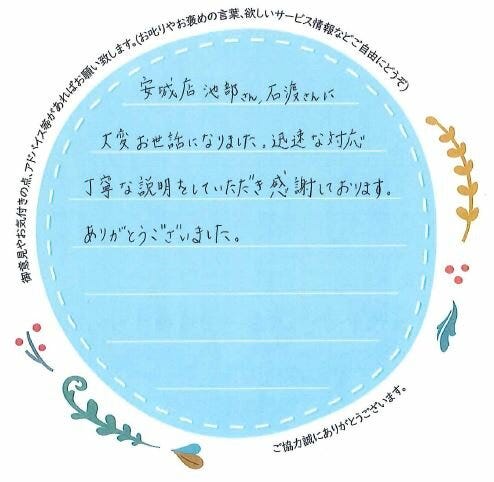 御意見やお気付きの点、アドバイス等があればお願い致します。(お叱りやお褒めの言葉、欲しいサービス情報などご自由にどうぞ)
安城店 池部さん,石渡さんに
大変お世話になりました。迅速な対応
丁寧な説明をしていただき感謝しております。
ありがとうございました。
ご協力誠にありがとうございます。